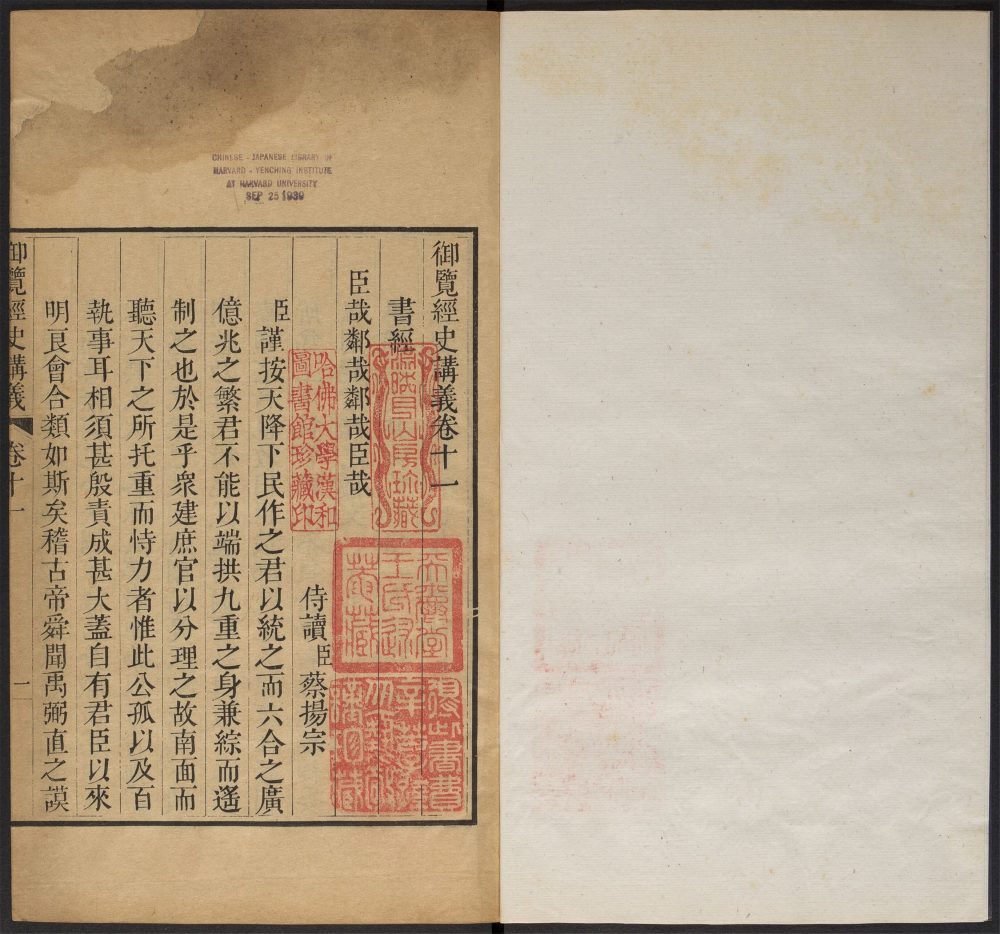 CHINESE - JAPANESE LIBRARY OF
HARVARD - YENCHING INSTITUTE
AT HARVARD UNIVERSITY
SEP 25 1939
御覽經史講義卷十一
書經
臣哉鄰哉鄰哉臣哉
侍讀臣蔡揚宗
臣謹按天降下民作之君以統之而六合之廣
億兆之繁君不能以端拱九重之身兼綜而遙
制之也於是乎衆建庶官以分理之故南面而
聽天下之所托重而恃力者惟此公孤以及百
執事耳相須甚殷責成甚大蓋自有君臣以來
明良會合類如斯矣稽古帝舜聞禹弼直之謨
御覽經史講義 卷十一 一
哈佛大學漢和
圖書館珍藏印